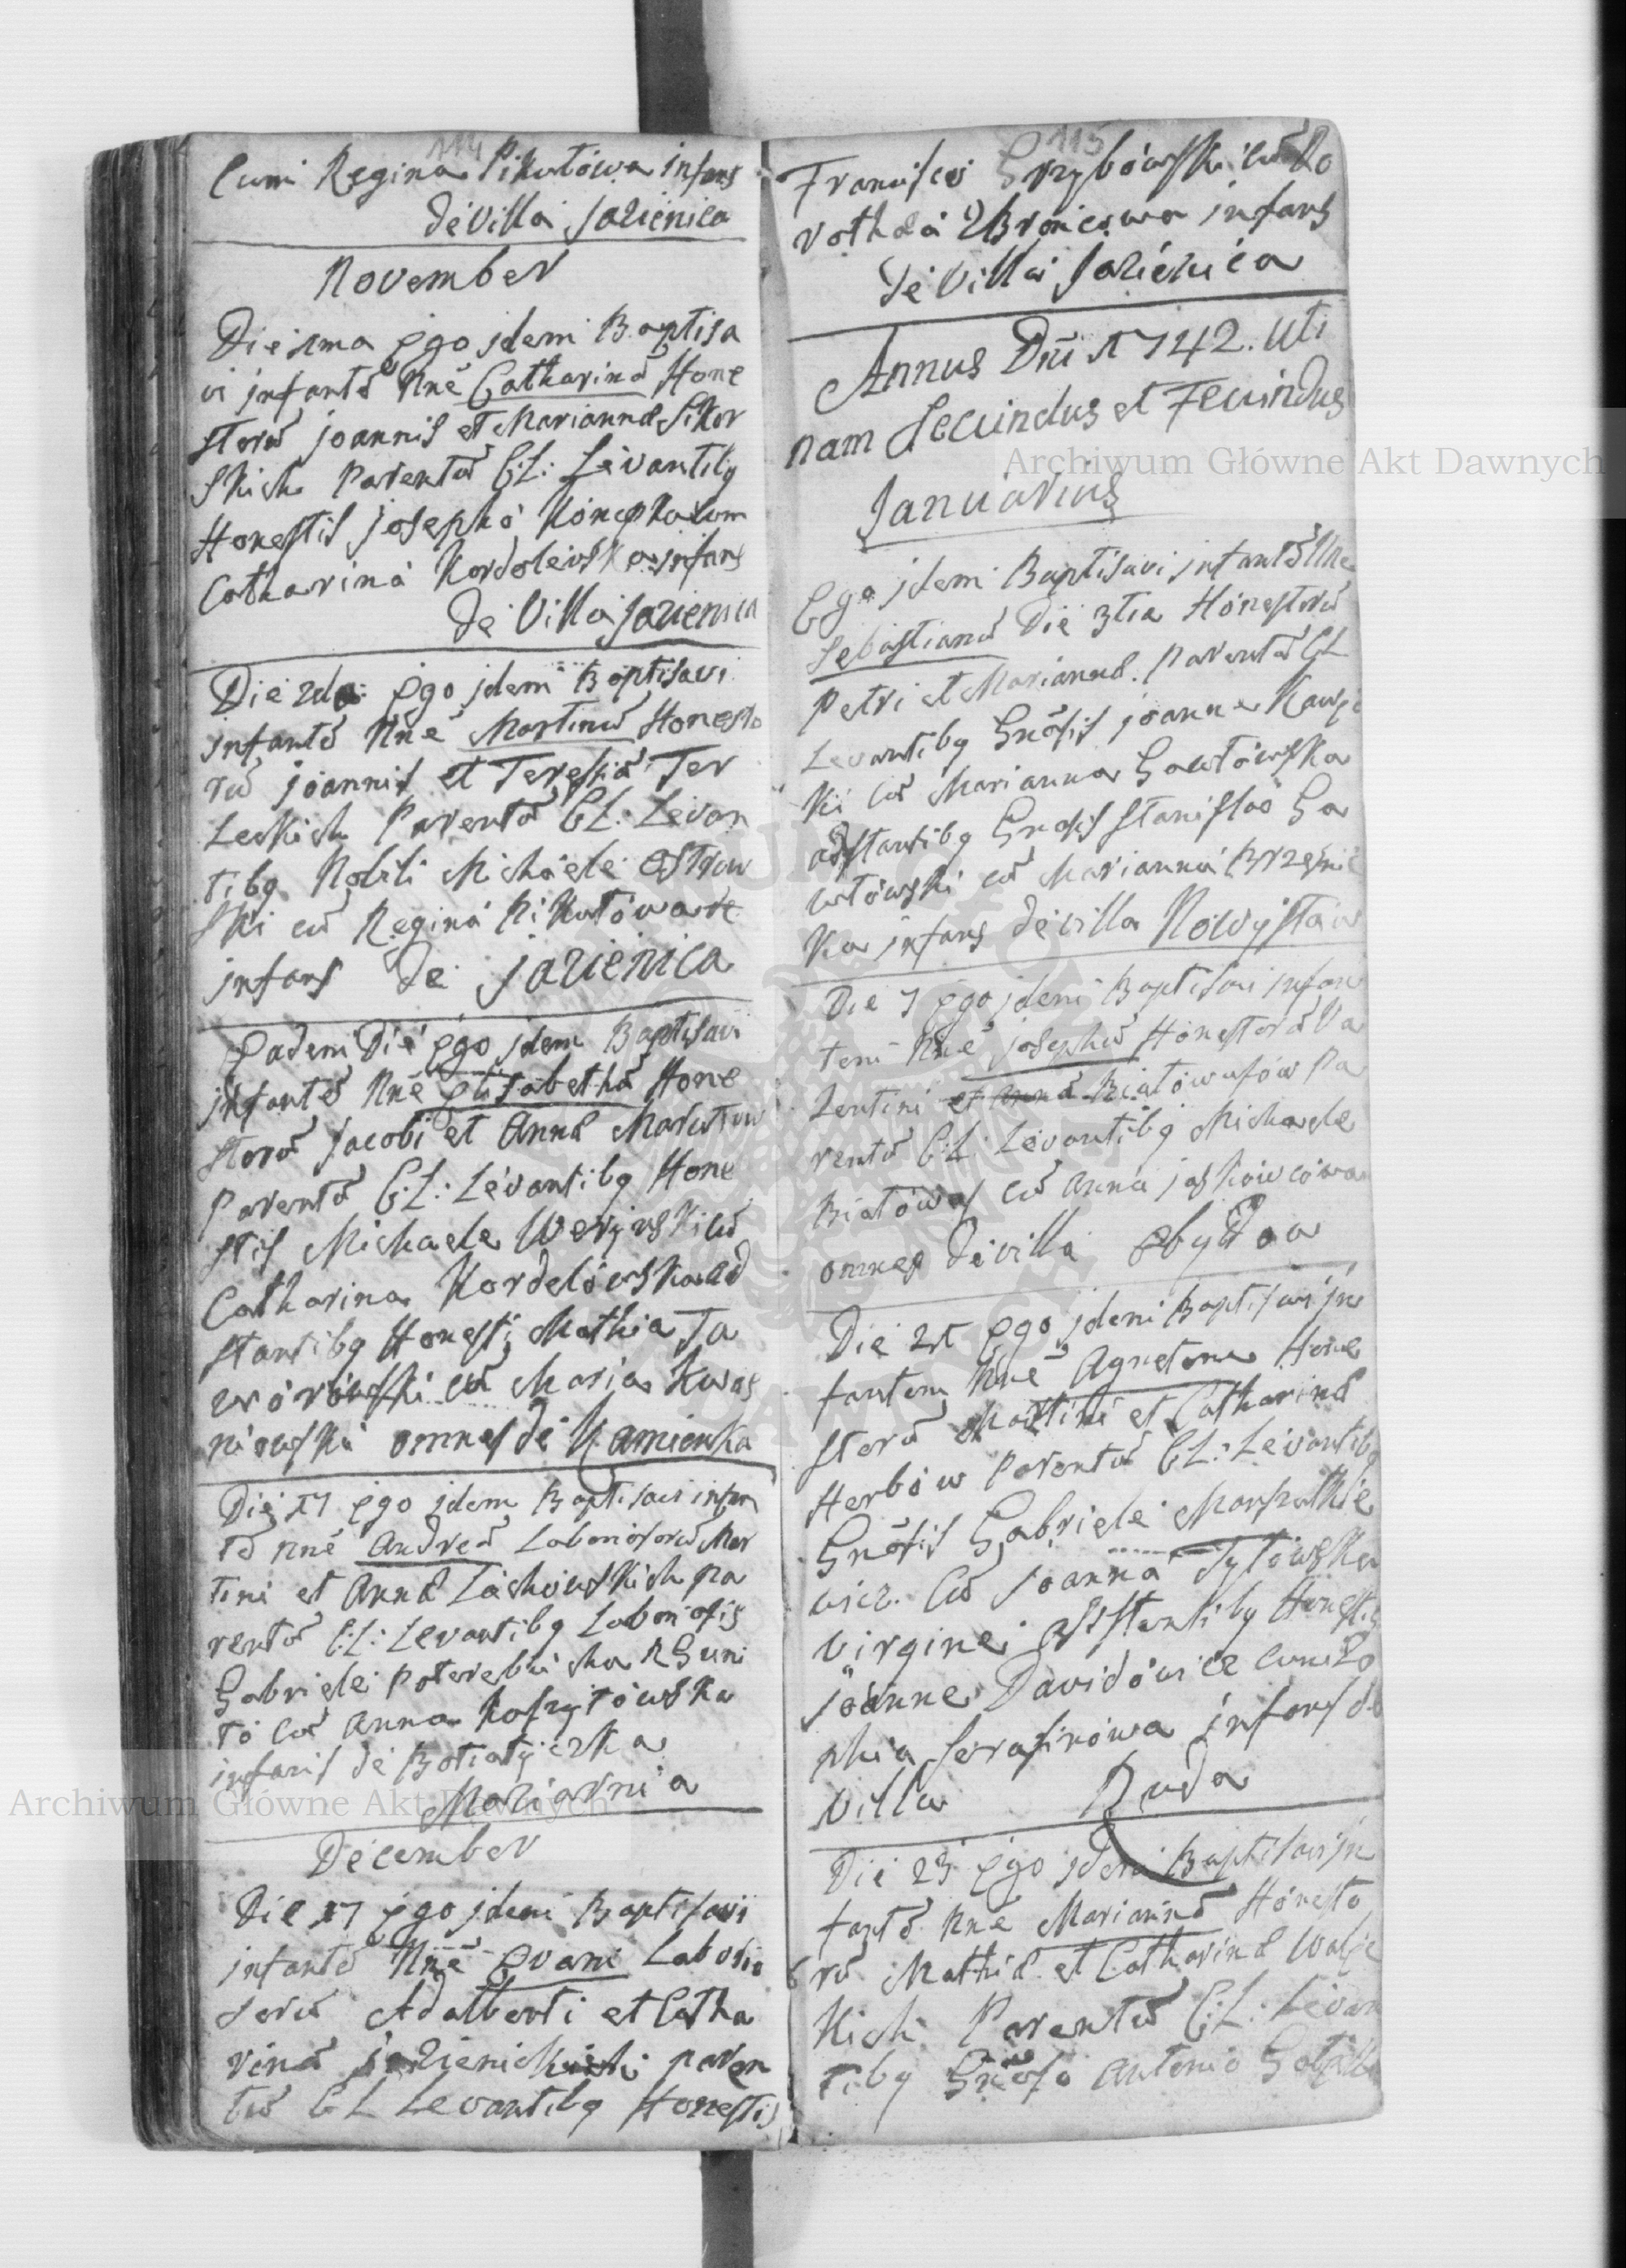 114
Cum Regina Pikutowa infans
de Villa Jazienica
November
Die 1ma Ego jdem Baptisa
vi infantē Nn̄e Catharinā Hone
storū joannis et Mariannæ Sikor
skich Parentū C:L: Levantibg
Honestis josepho Koncpka cum
Catharina Kordolewska infans
de Villa Jazienica
Die 2da Ego jdem Baptisavi
infantē Nn̄e Martinū Honesto
rū joannis et Teresia Ter
leckich Parentū C:L: Levan
tibg Nobili Michaele Ostrow
ski cū Regina Pikutowa
infans de jazienica
Eadem Die Ego jdem Baptisavi
infantē Nn̄e Elisabethā Hone
storū Jacobi et Annæ
Parentū C:L: Levantibg Hone
stis Michaele cū
Catharina Kordelowska ad
stantibg Honesti Mathia Ja
worowski cū Maria Kwas
niewska omnes de Kamienka
Die 17 Ego jdem Baptisavi infan
tē Nn̄e Andreā Laboriosorū Mar
tini et Annæ Lachowskich pa
rentū C:L: Levantibg Laboriosis
Gabriele
to cū Anna Koszytowska
infans de Botiatycka
Maziarnia
December
Die 17 Ego jdem Baptisavi
infantē Nn̄e Evam Laborio
sorū Adalberti et Catha
rinā paren
tū C L Levantibg Honestis
115
Francisci Grzybowski cū Do
rothea infans
de Villa Jazienica
Annus Dn̄i 1742. Uti
nam Secundus et Fecundus
Januarius
Ego jdem Baptisavi infantē Nn̄e
Sebastianū Die 3tia Honestorū
Petri et Mariannæ. Parentū C L
Levantibg Gn̄osis joanne
ki cū Marianna Gawłowska
adstantibg Gn̄osis Stanislao Ga
włowski cū Marianna Brzesnic
ka infans de villa Nowystaw
Die 7 Ego jdem Baptisavi infan
tem Nn̄e josephū Honestorū Va
lentini et Anna Białowąsow Pa
rentū C:L: Levantibg Michaele
Białowąs cū Anna jaskowcowa
omnes de villa Obydow
Die 21 Ego jdem Baptisavi in
fantem Nn̄e Agnetem Hone
storū Martini et Catharinæ
Herbow Parentū C:L: Levantibg
Gn̄osis Gabriele
wicz. Cū Joanna Sytowska
virgine assistentibg Honestis
Joanne Dawidowicz cum So
phia Serafinowa infans de
Villa Ruda
Die 23 Ego jdem Baptisavi in
fantē Nn̄e Mariannā Honesto
rū Mathiæ et Catharinæ
kich Parentū C:L: Levan
tibg Gn̄oso Antonio
Archiwum Główne Akt Dawnych
Archiwum Główne Akt Dawnych